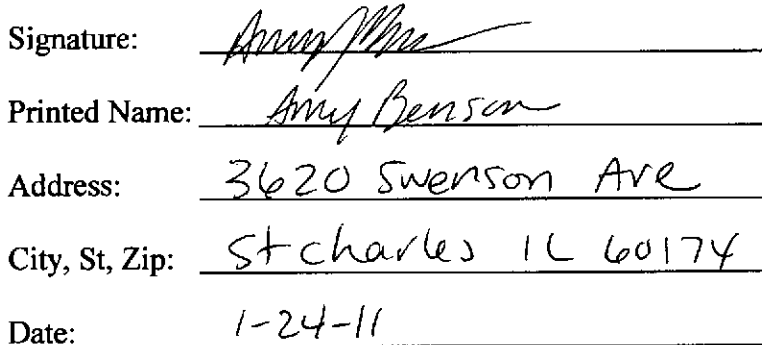 Signature: Amy
Printed Name: Amy Benson
Address: 3620 Swenson Ave
City, St, Zip: St charles IL 60174
Date: 1-24-11